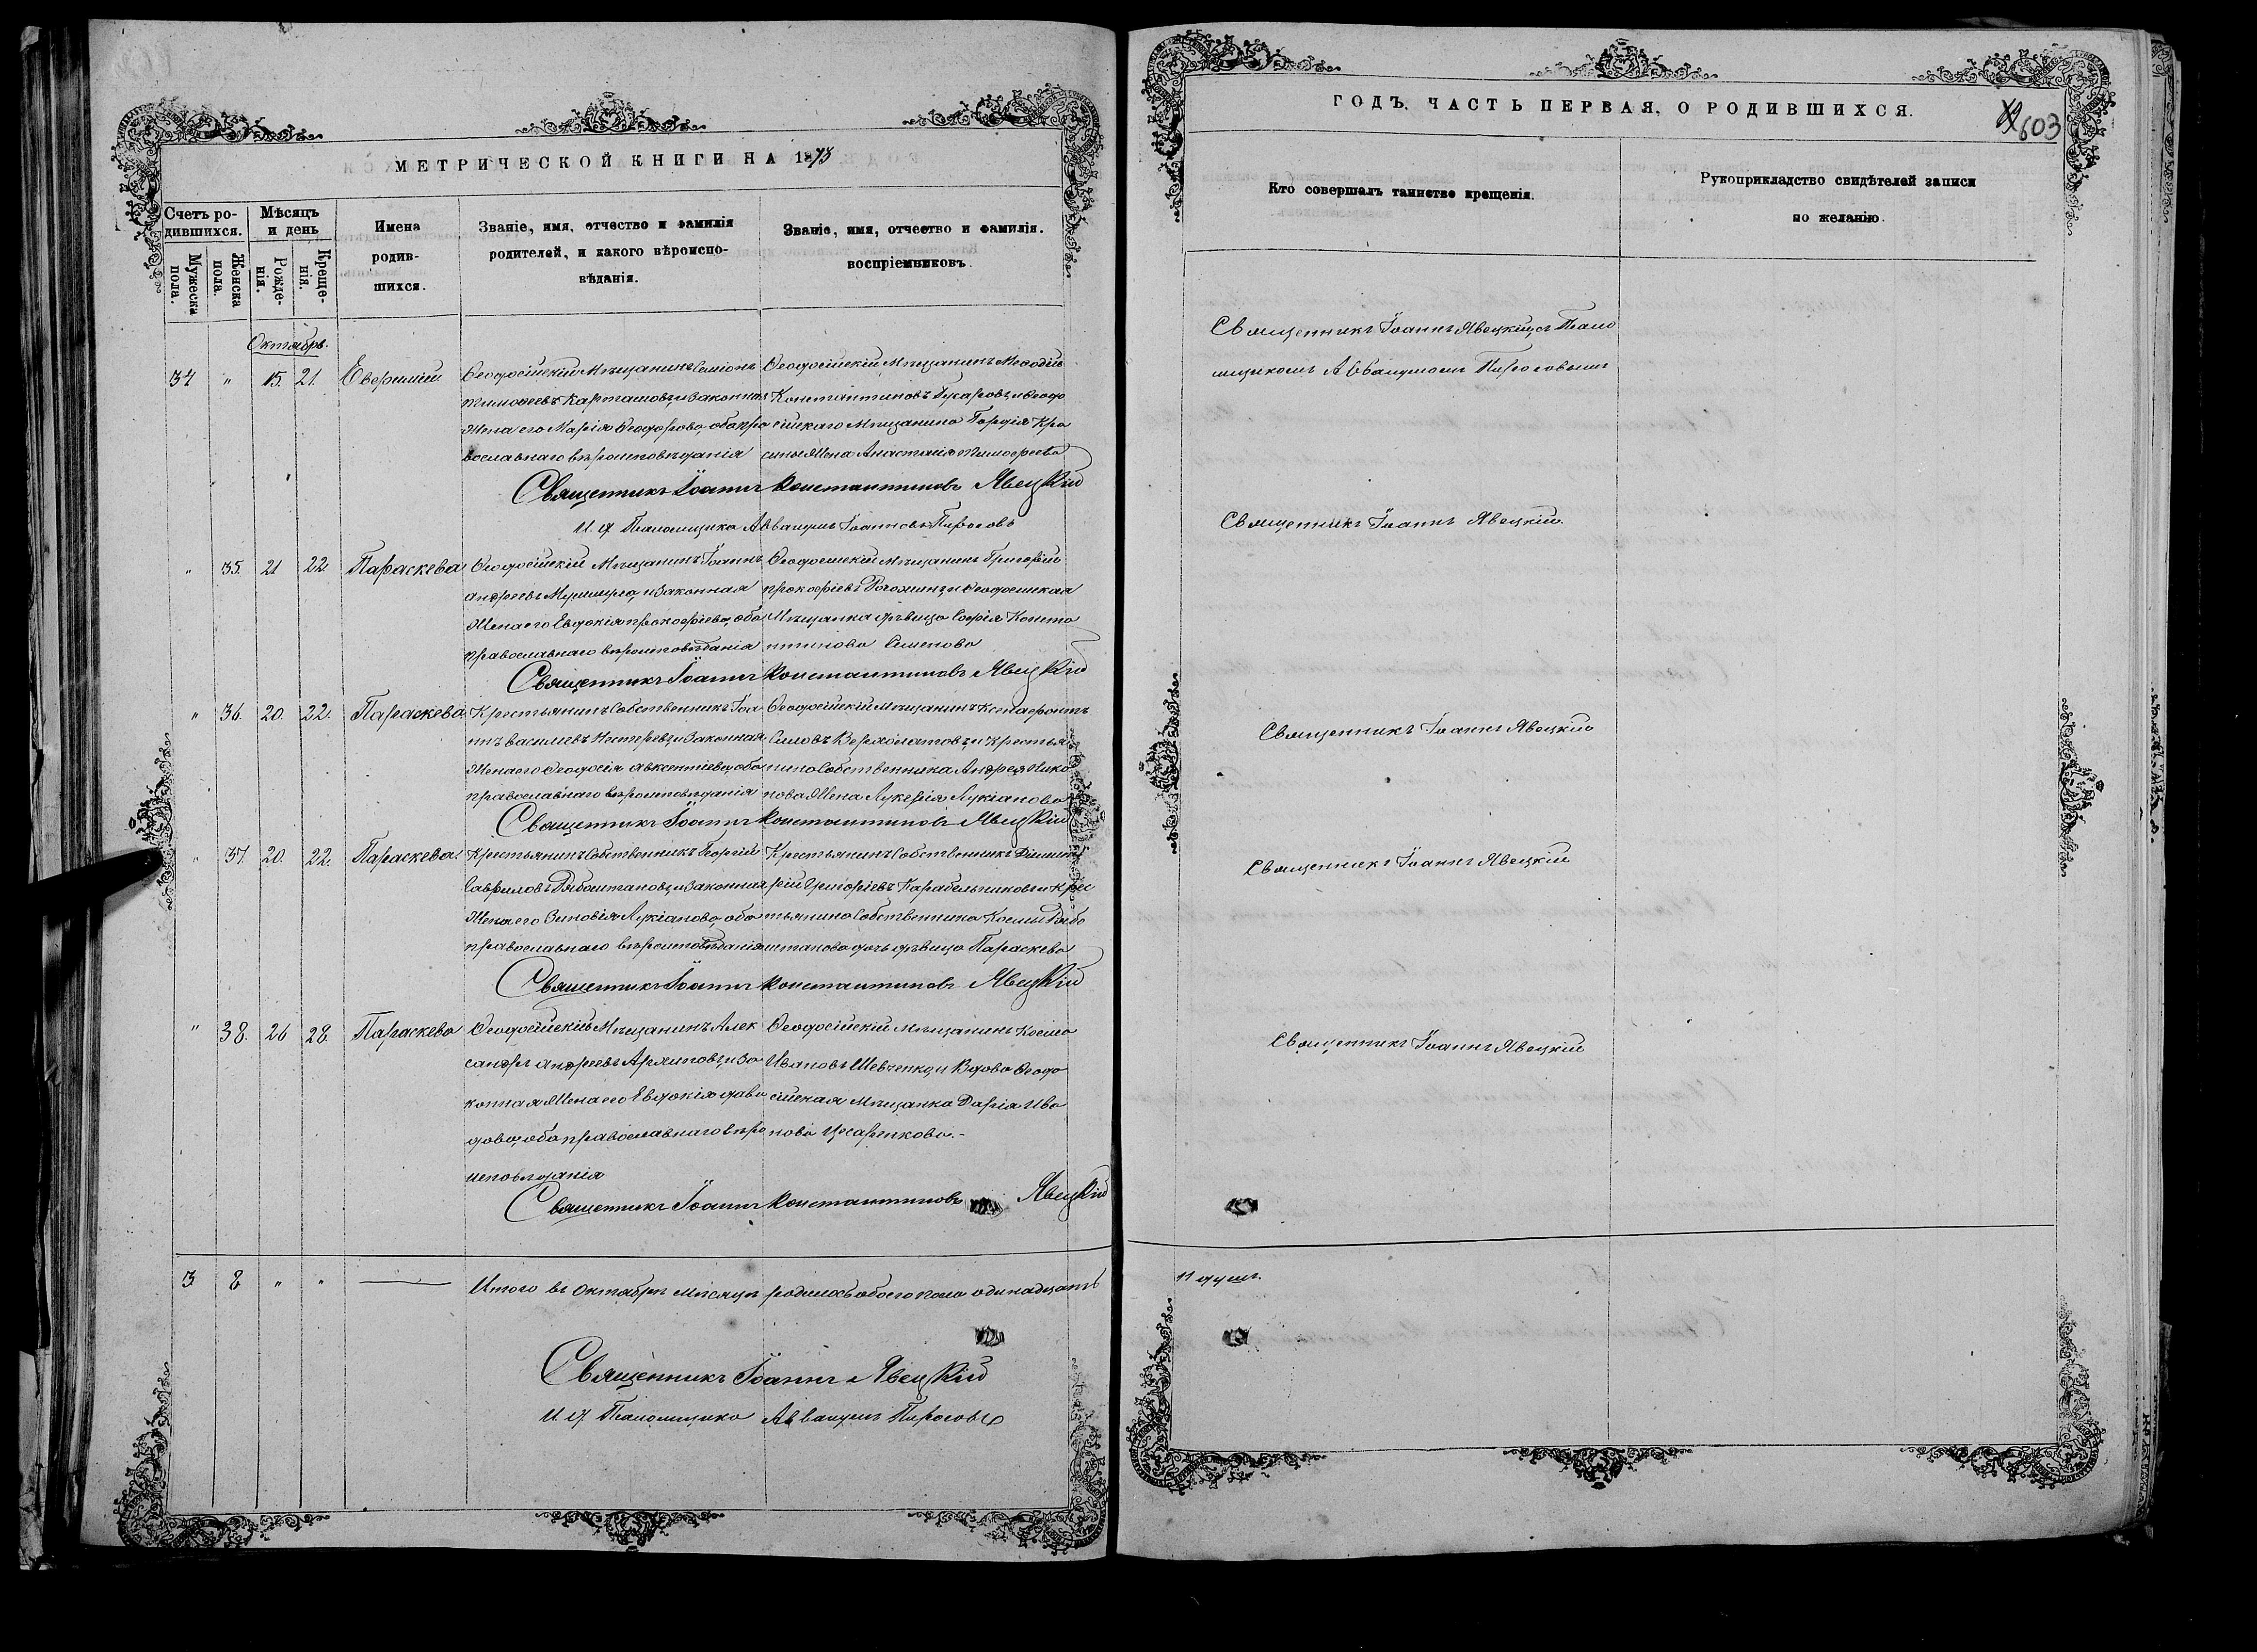 МЕТРИЧЕСКОЙ КНИГИ НА 1873
Счетъ ро-
дившихся.
Мужеска
пола.
Женска
пола.
Мѣсяцъ
и день
Рожде-
нія.
Креще-
нія.
Имена
родив-
шихся.
Званіе, имя, отчество и фамилія
родителей, и какого вѣроиспо-
вѣданія.
Званіе, имя, отчество и фамилія.
воспріемниковъ.
Октябрь.
34 " 15. 21. Евѳимій
Ѳеодосійскій Мѣщанинъ Симіонъ
Тимоѳеевъ Карташовъ, и законная
Жена его Марія Ѳеодорова, оба пра
вославнаго вѣроисповѣданія
Ѳеодосійскій Мѣщанинъ Меѳодій
Константиновъ Гусаровъ, и Ѳеодо
сійскаго Мѣщанина Гордія Кра
Жена Анастасія Тимоѳеева
Священникъ Іоаннъ Константиновъ Явецкій
И. д. Псаломщика Аввакумъ Іоанновъ Пироговъ
" 35. 21 22. Параскева
Ѳеодосійскій Мѣщанинъ Іоаннъ
Андреевъ и законная
Жена его Евдокія Прокофіева, оба
православнаго вѣроисповѣданія
Ѳеодосійскій Мѣщанинъ Григорій
Прокофіевъ и Ѳеодосійская
Мѣщанка дѣвица Софія Конста
нтинова Семенова
Священникъ Іоаннъ Константиновъ Явецкій
" 36. 20. 22. Параскева
Крестьянинъ Собственникъ Іоа
ннъ Василіевъ Нестеревъ, и законная
Жена его Ѳеодосія Авксентіева, оба
православнаго вѣроисповѣданія
Ѳеодосійскій Мѣщанинъ Ксенофонтъ
Силовъ и Крестья
нина Собственника Андрея Нико
нова Жена Лукерія Лукіанова
Священникъ Іоаннъ Константиновъ Явецкій
" 37. 20. 22. Параскева
Крестьянинъ Собственникъ Георгій
Гавриловъ Рябоштановъ, и законная
Жена его Зиновія Лукіанова, оба
православнаго вѣроисповѣданія
Крестьянинъ Собственникъ Дими
трій Григоріевъ Карабельниковъ и Крес
тьянина Собственника Космы Рябо
штанова дочь дѣвица Параскева
Священникъ Іоаннъ Константиновъ Явецкій
" 38. 26 28. Параскева
Ѳеодосійскій Мѣщанинъ Алек
сандръ Андреевъ и за
конная Жена его Евдокія Дави
дова, оба православнаго вѣро
исповѣданія
Ѳеодосійскій Мѣщанинъ Косма
Ивановъ Шевченко, и Вдова Ѳеодо
сійская Мѣщанка Дарія Ива
нова Цесаренкова.-
Священникъ Іоаннъ Константиновъ Явецкій
3 8 " "
Итого въ Октябрѣ Мѣсяцѣ родилось обоего пола одинадцать
Священникъ Іоаннъ Явецкій
И. д. Псаломщика Аввакумъ Пироговъ
ГОДЪ, ЧАСТЬ ПЕРВАЯ, О РОДИВШИХСЯ.
603
Кто совершалъ таинство крещенія.
Рукоприкладство свидѣтелей записи
по желанію.
Священникъ Іоаннъ Явецкій съ Псало
мщикомъ Аввакумомъ Пироговымъ
Священникъ Іоаннъ Явецкій.
Священникъ Іоаннъ Явецкій
Священникъ Іоаннъ Явецкій
Священникъ Іоаннъ Явецкій
11 душъ.